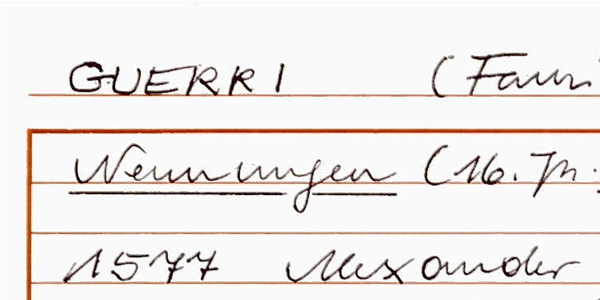 GUERRI (Fami
Nennungen (16. Jh.
1577 Alexander